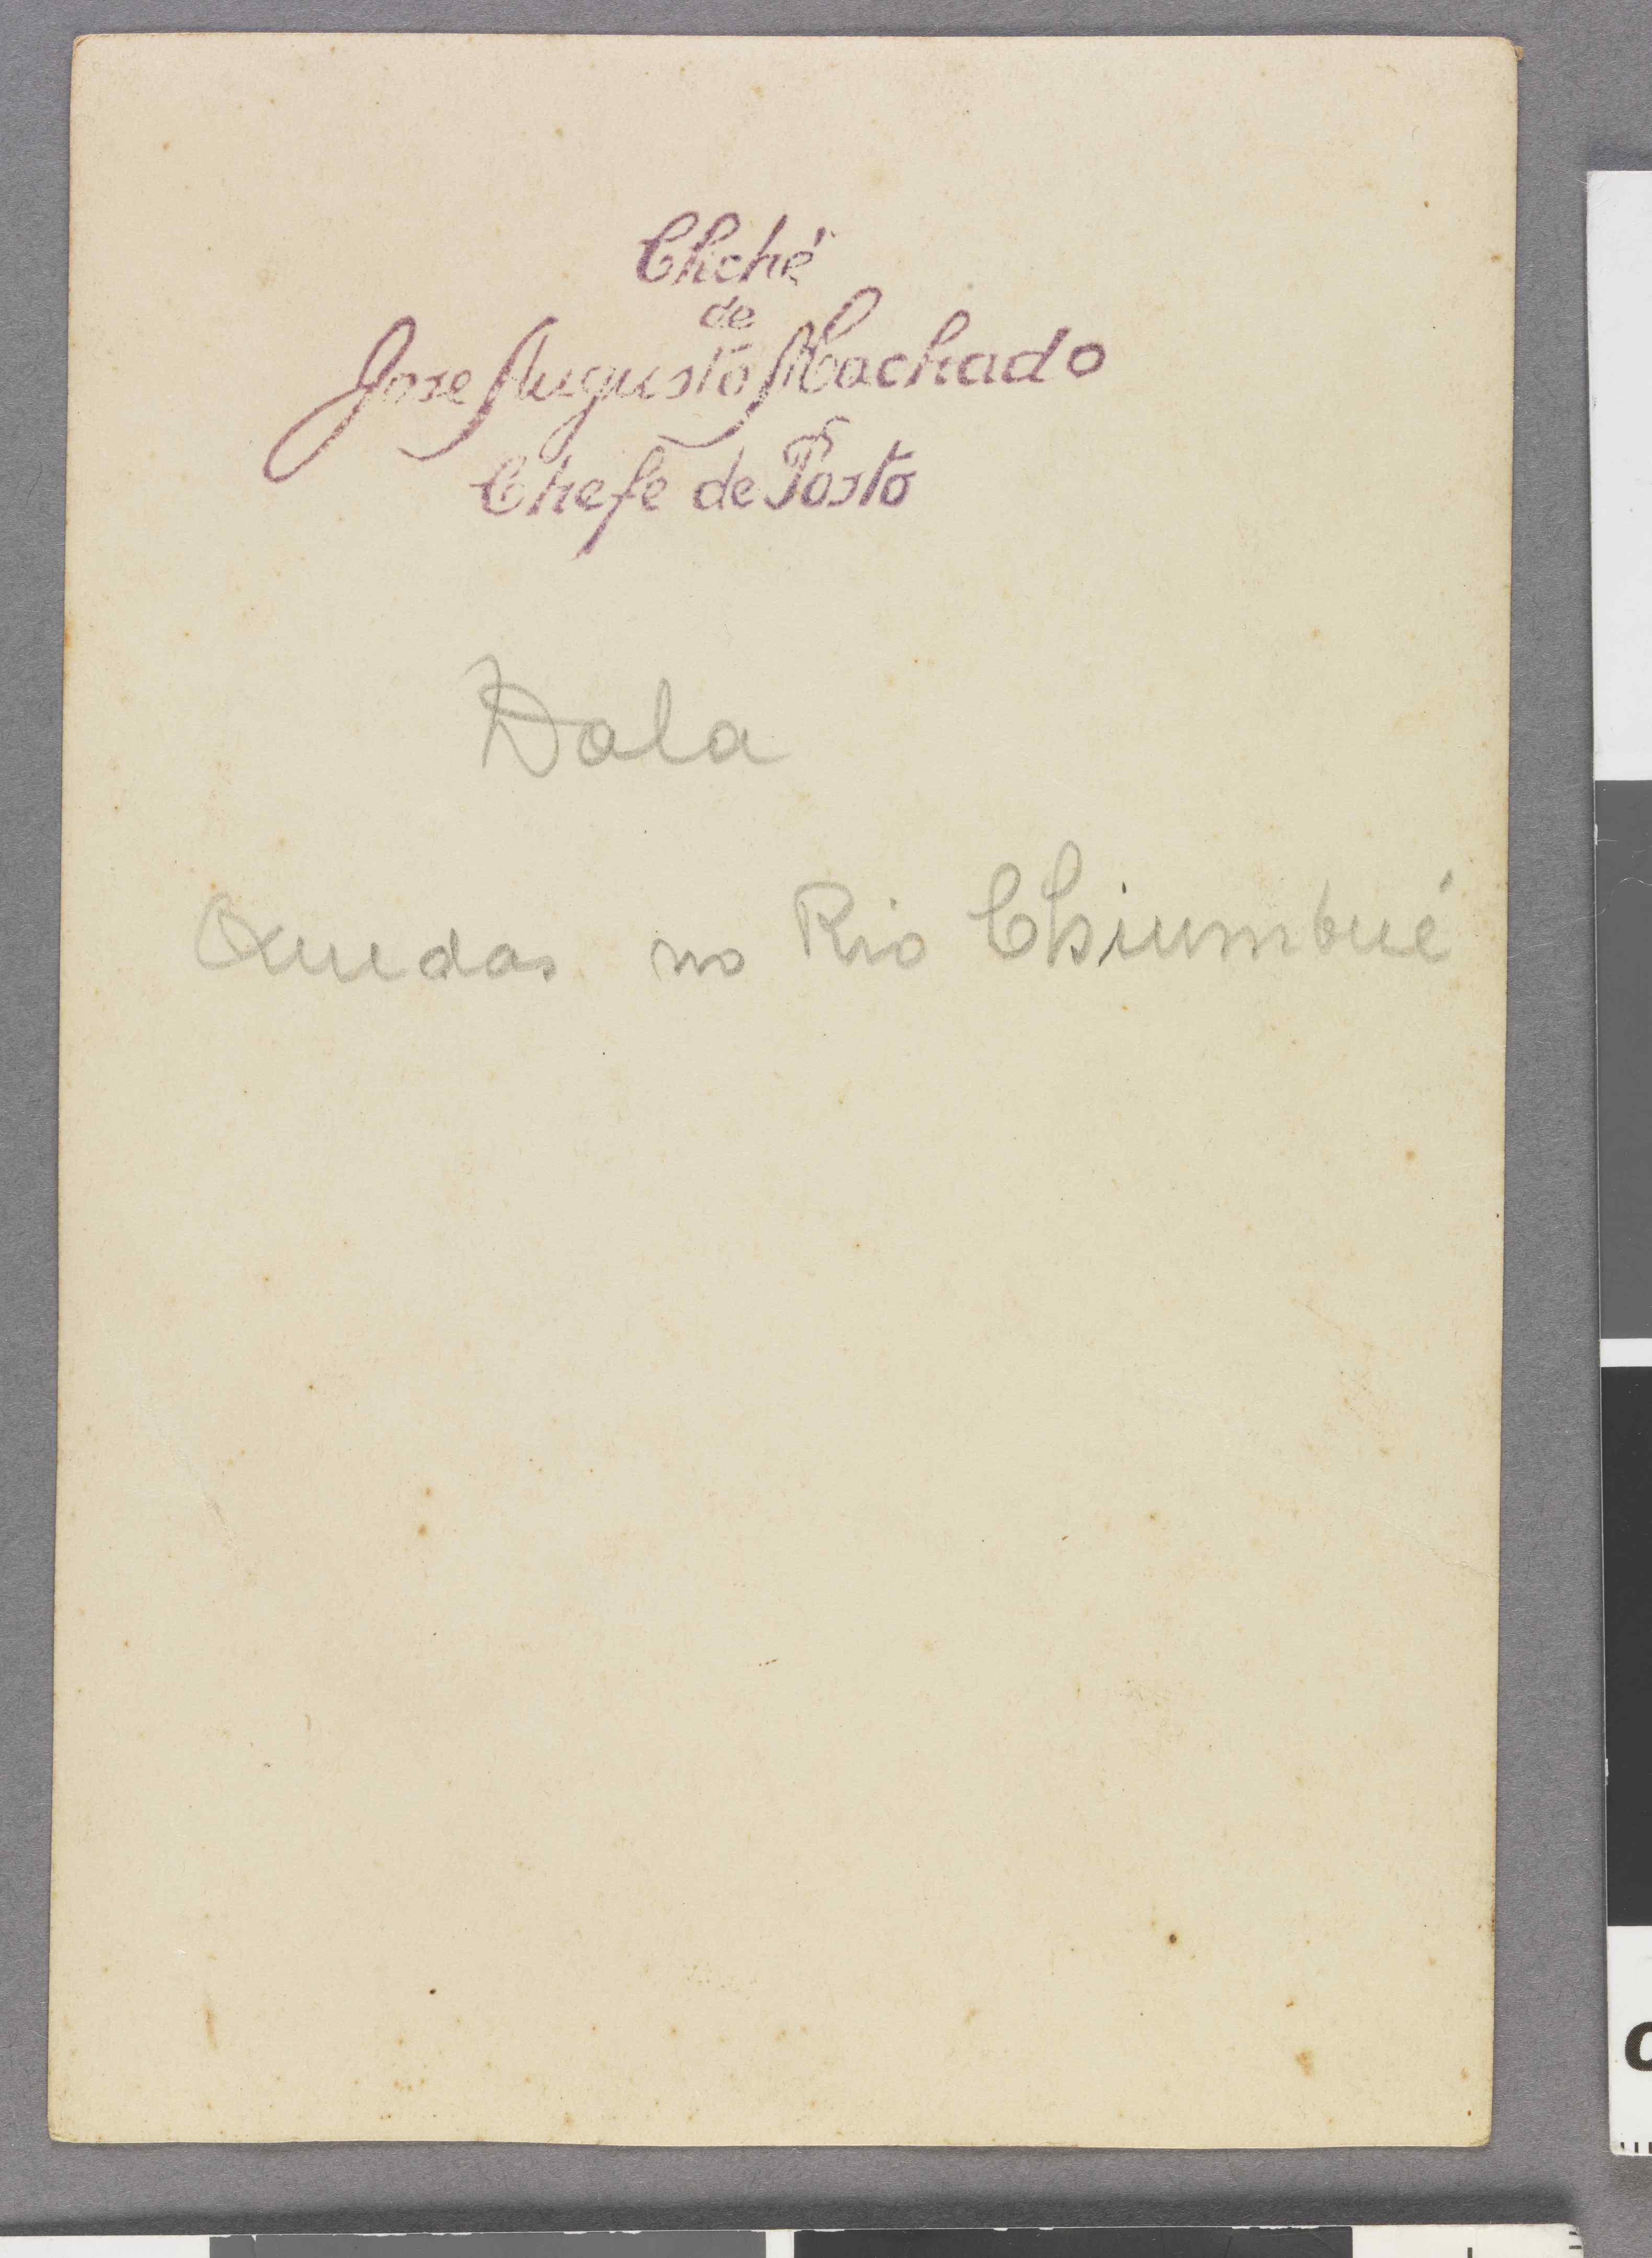 Cliché
de
Jose Augusto Machado
Chefe de Posto
Dala
Quedas no Rio Chiumbué